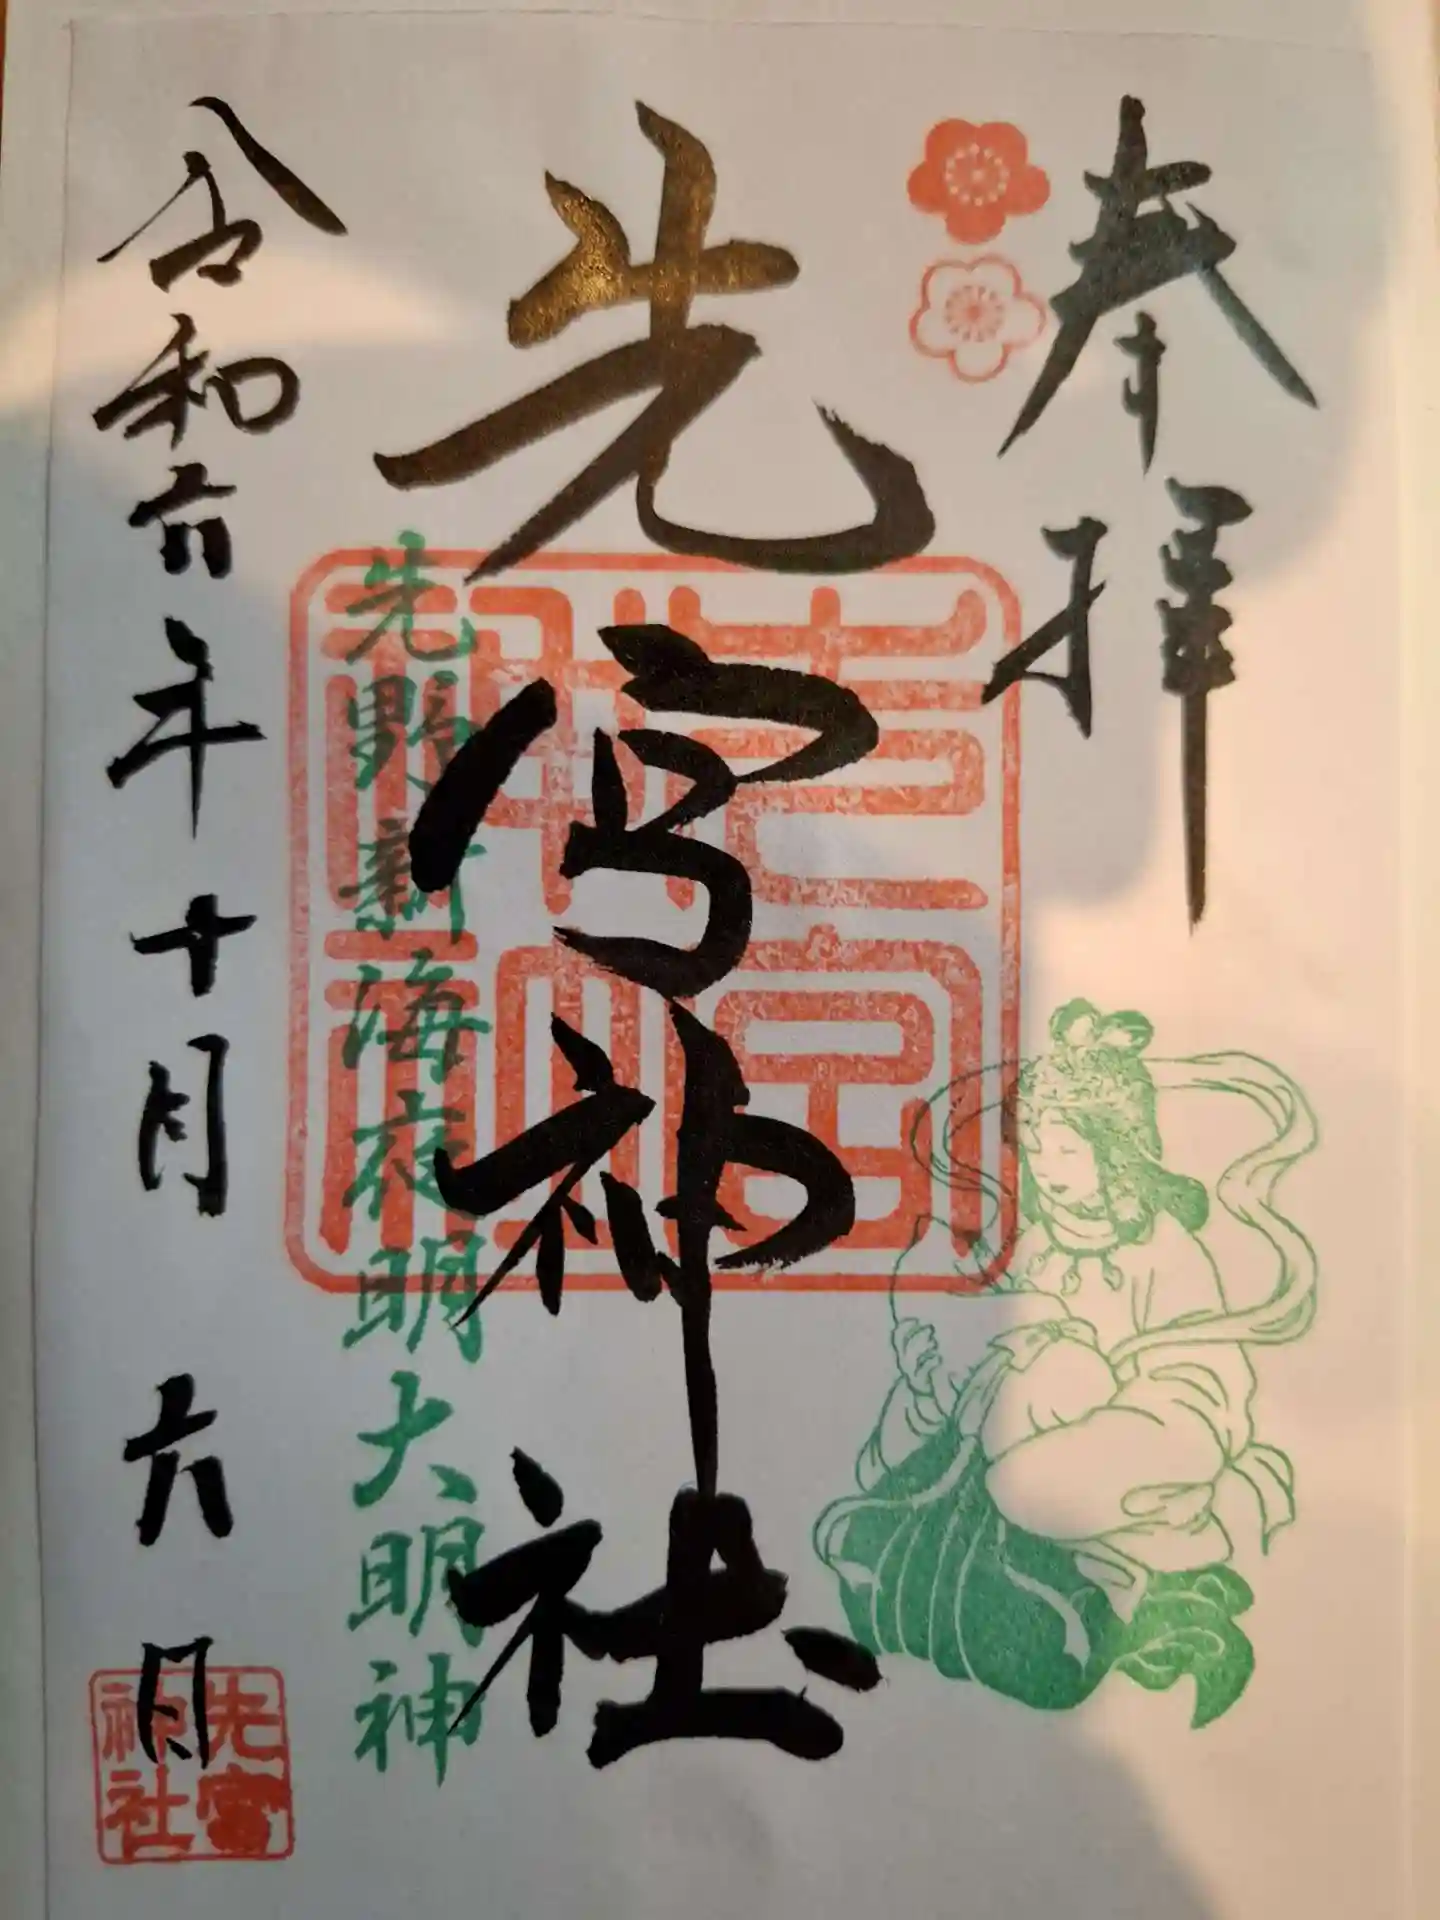 奉拝
先宮神社
先野新海夜明大明神
令和六年十月六日
先宮
神社